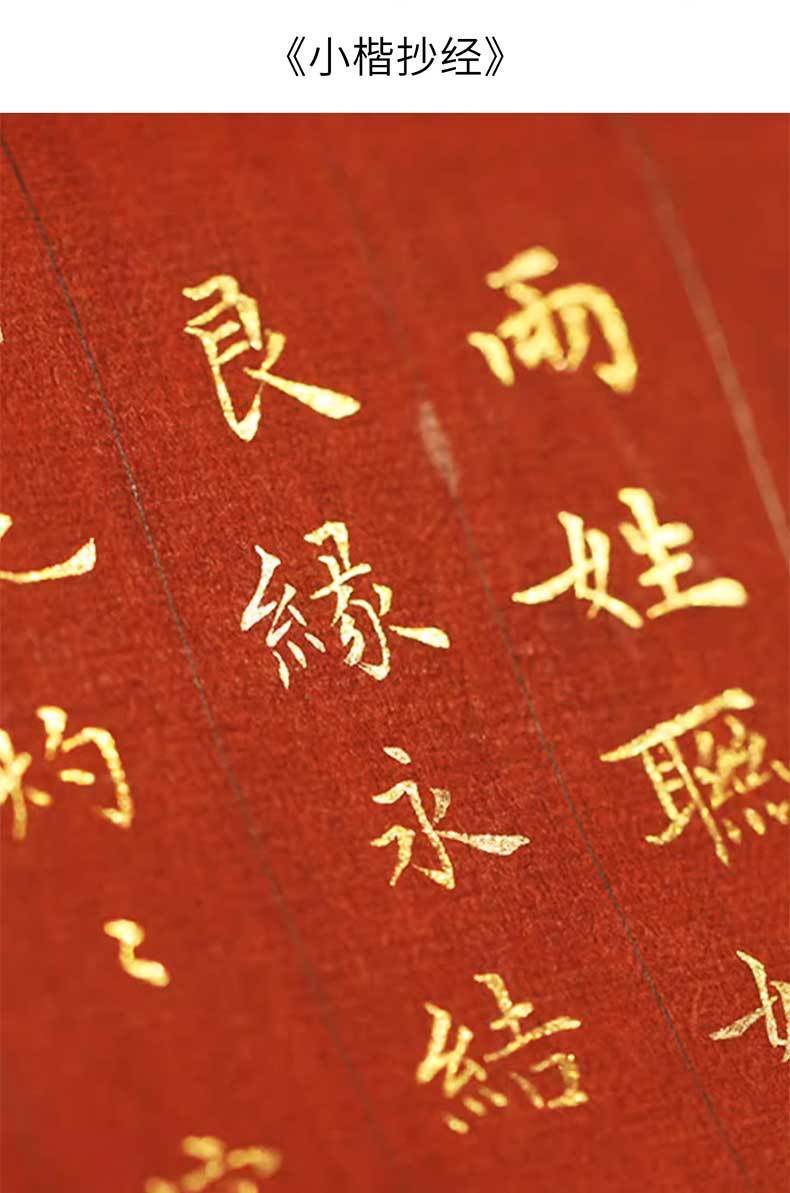 《小楷抄经》
兩姓聯
良緣永結
灼〻